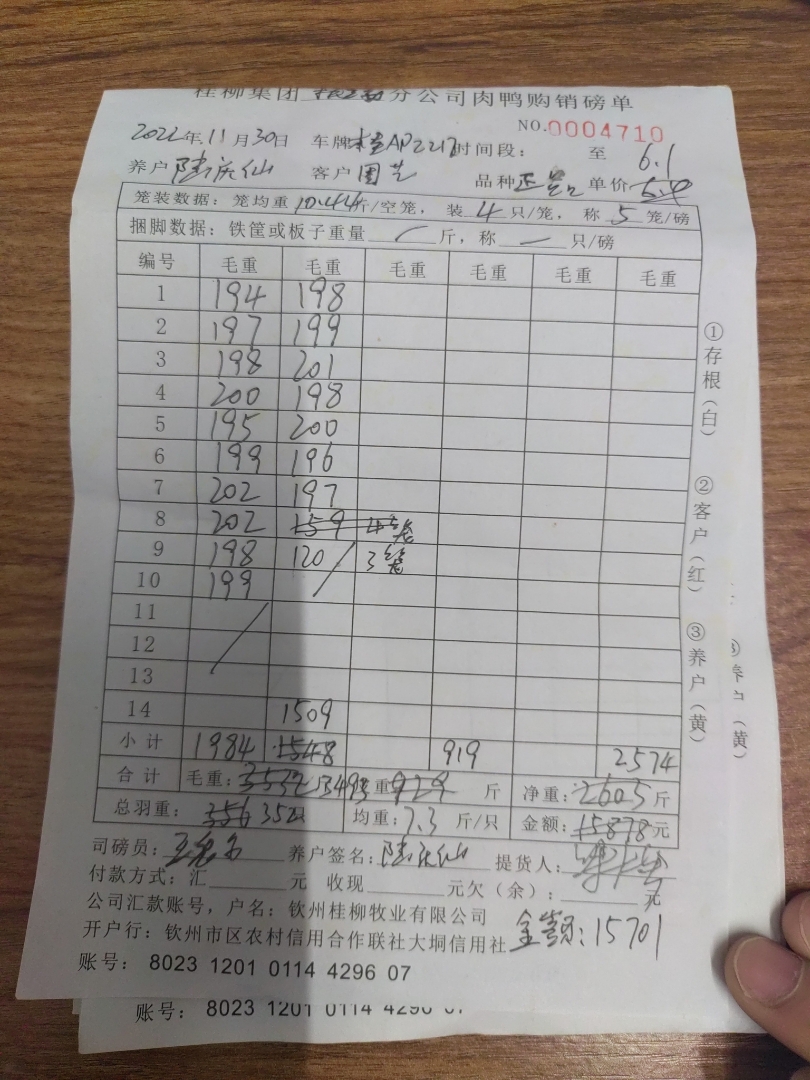 桂柳集团 分公司肉鸭购销磅单
NO.0004710
2022年11月30日 车牌 AP2217 时间段： 至 6.1
养户 陆庆仙 客户 国艺 品种 单价 5.4
笼装数据：笼均重 10.44 斤/空笼，装 4 只/笼，称 5 笼/磅
捆脚数据：铁筐或板子重量 / 斤，称 — 只/磅
编号 毛重 毛重 毛重 毛重 毛重 毛重
1 194 198
2 197 199
3 198 201
4 200 198
5 195 200
6 199 196
7 202 197
8 202 159 4笼
9 198 120 3笼
10 199
11
12
13
14 1509
小计 1984 1548 919 2574
合计 毛重：3532 3493 重 929 斤 净重：2603 斤
总羽重：356 352 均重：7.3 斤/只 金额：15878 元
司磅员： 养户签名：陆庆仙 提货人：
付款方式：汇 元 收现 元 欠（余）： 元
公司汇款账号，户名：钦州桂柳牧业有限公司
开户行：钦州市区农村信用合作联社大垌信用社 金额：15701
账号： 8023 1201 0114 4296 07
①存根（白）
②客户（红）
③养户（黄）
③养户（黄）
账号： 8023 1201 0114 4296 07